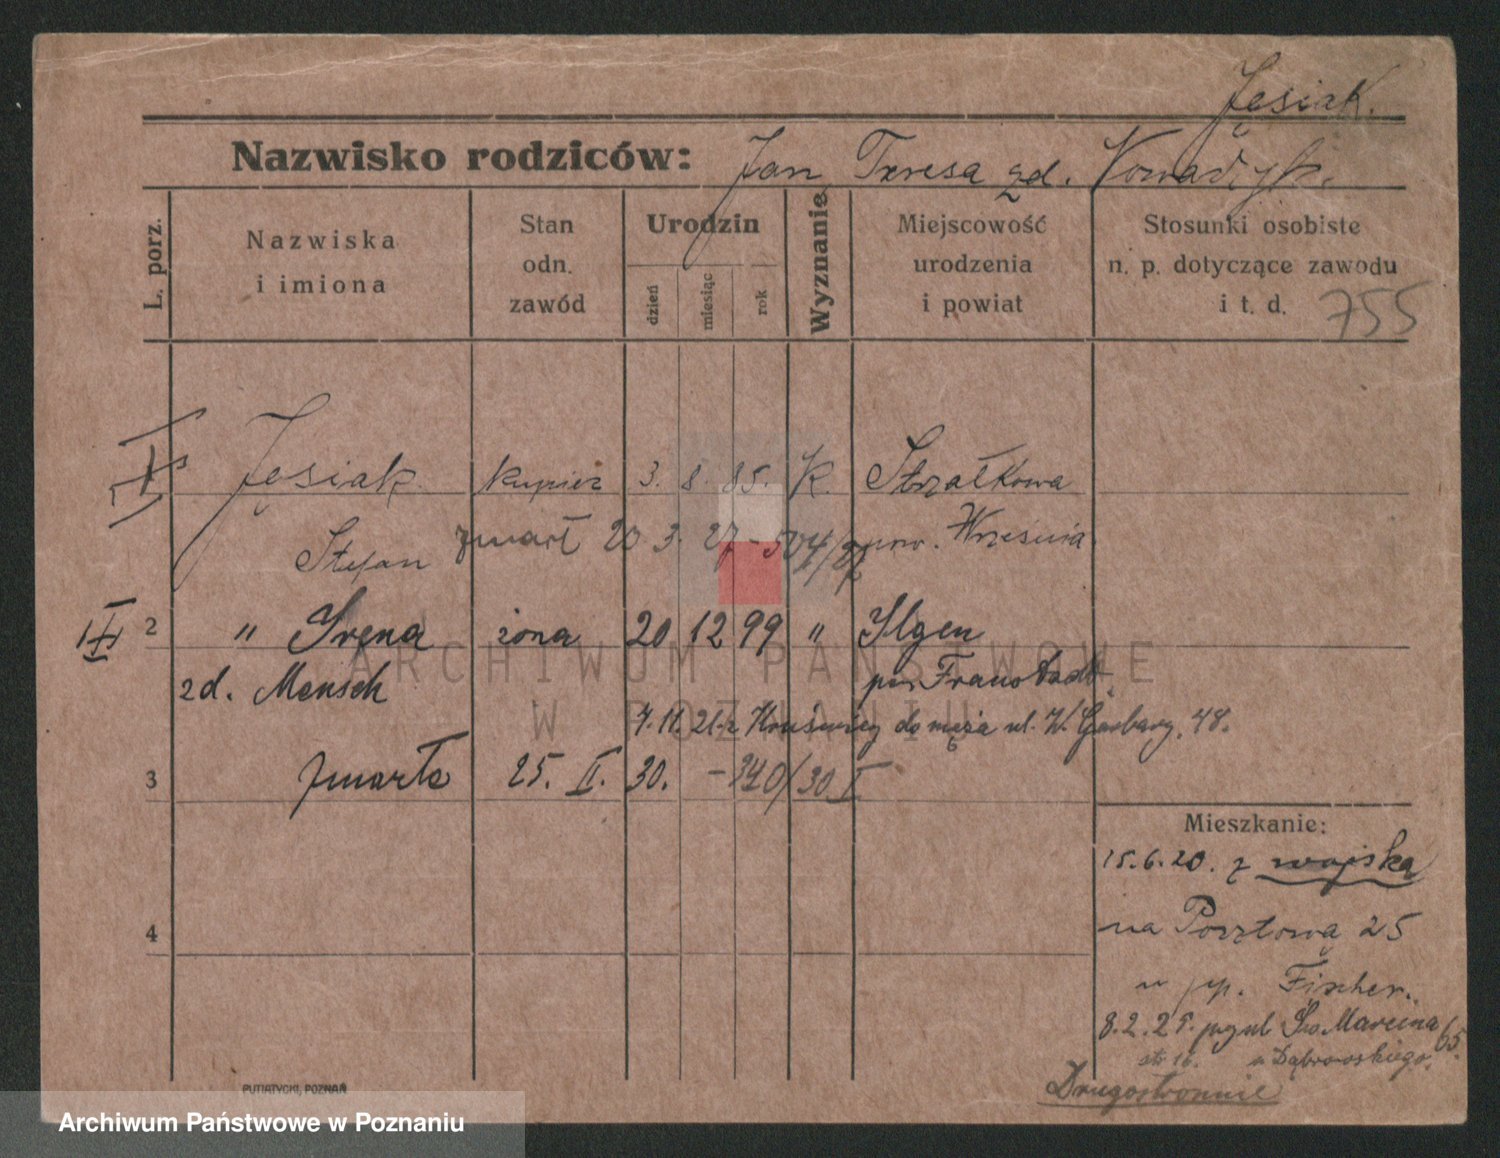 Jęsiak.
Nazwisko rodziców: Jan Teresa zd.
L. porz.
Nazwiska
i imiona
Stan
odn.
zawód
Urodzin
dzień
miesiąc
rok
Wyznanie
Miejscowość
urodzenia
i powiat
Stosunki osobiste
n. p. dotyczące zawodu
i t. d. 755
1 Jęsiak kupiec 3. 8. 85. K. Strzałkowa
Stefan zmarł 20 3. 27 pow. Września
2 " Irena żona 20 12 99 " Ilgen
zd. Mensch pow Fraustadt
7.11.21. z Kruświcy do męża ul. W. Garbary. 48.
3 zmarła 25. II. 30. -340/30 I
Mieszkanie:
15.6.20. z wojska
4 na Pocztową 25
u pp. Fischer.
8.2.25. Św. Marcina 65.
u Dąbrowskiego.
Drugostronnie
PUTIATYCKI, POZNAŃ
ARCHIWUM PAŃSTWOWE
W POZNANIU
Archiwum Państwowe w Poznaniu